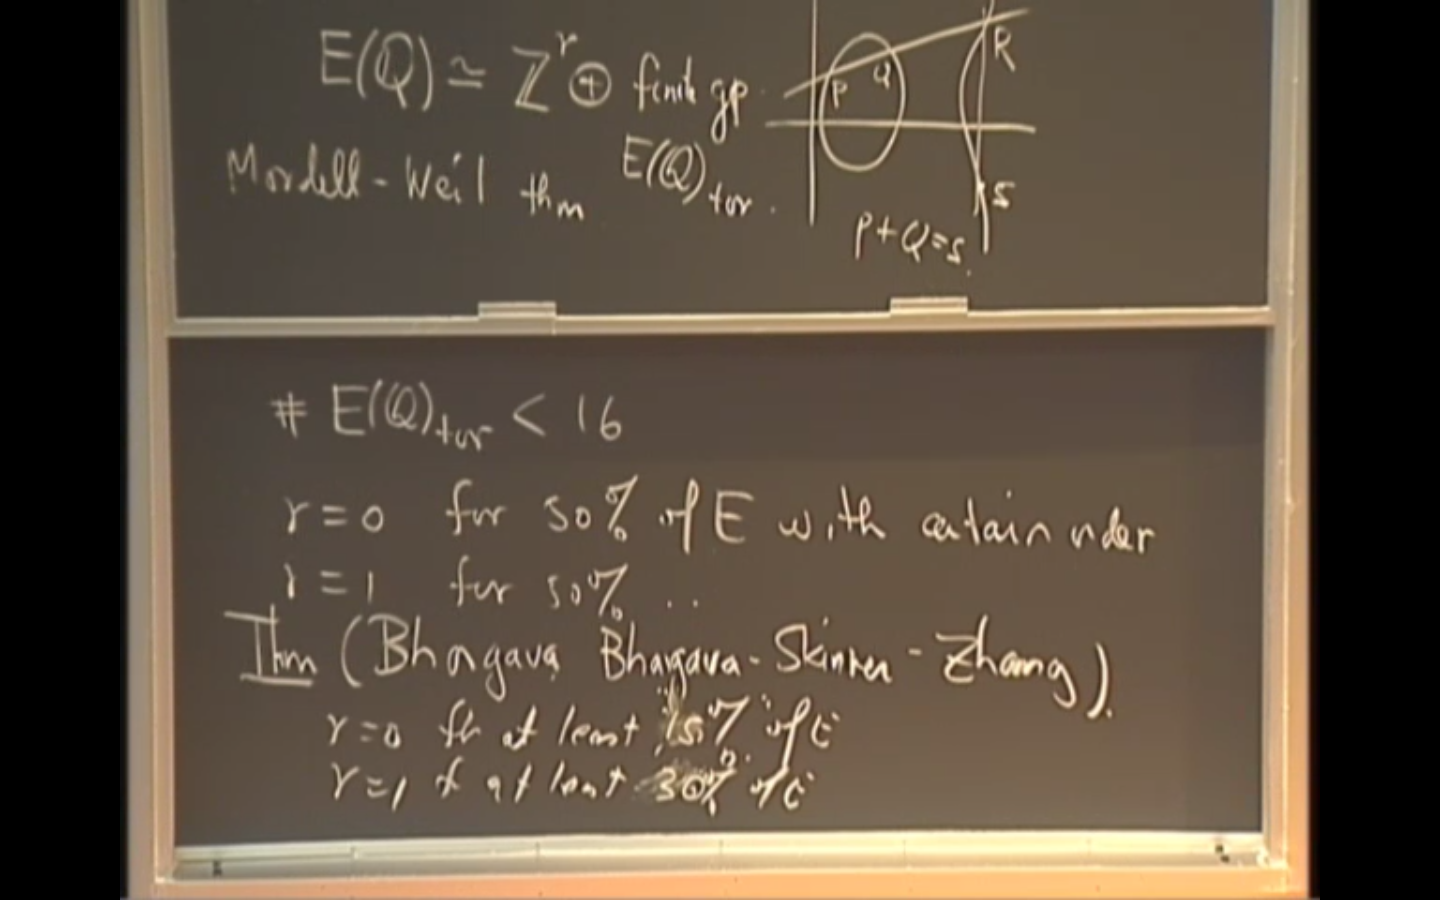 E(Q) ≃ Z^r ⊕ finite gp.
Mordell-Weil thm E(Q)_tor.
P Q R
S
P+Q=S.
# E(Q)_tor < 16
r=0 for 50% of E with certain order
r=1 for 50% ..
Thm (Bhargava Bhargava-Skinner-Zhang).
r=0 for at least 15% of E
r=1 for at least 30% of E